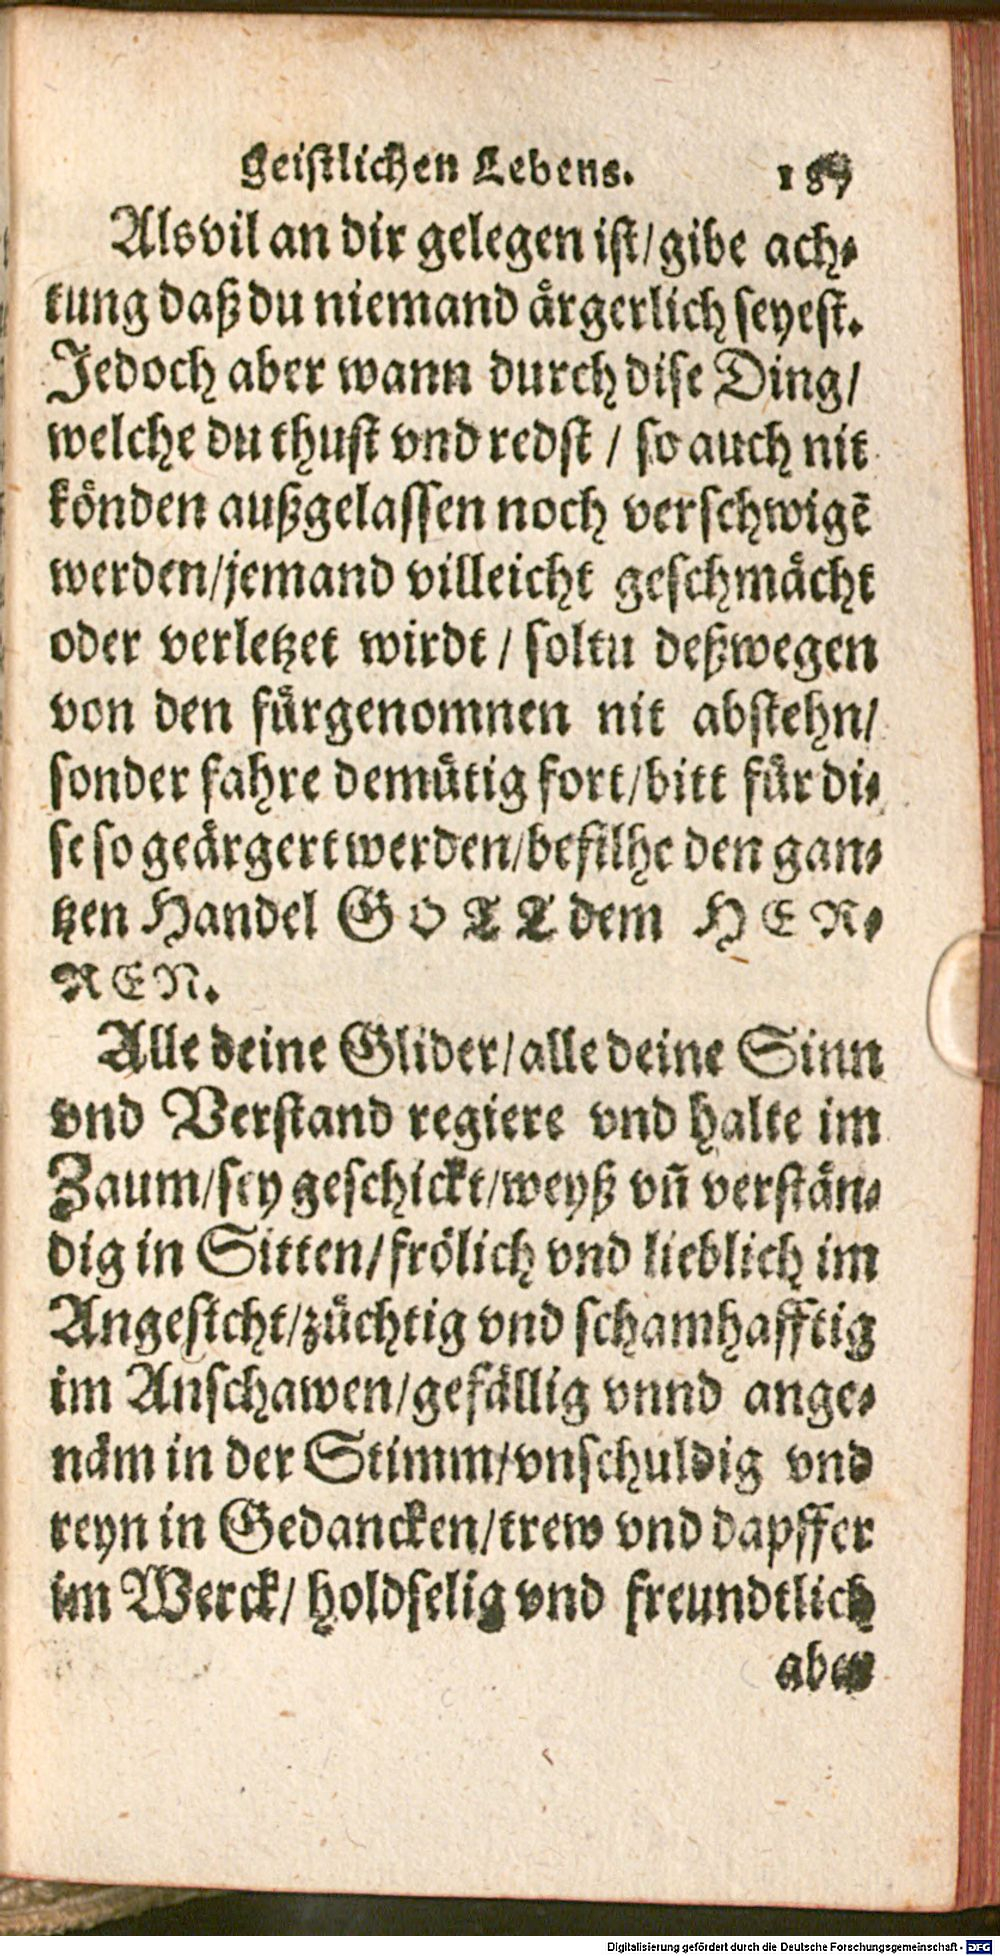 geistlichen Lebens. 187
Als vil an dir gelegen ist/gibe ach-
tung daß du niemand ärgerlich seyest.
Jedoch aber wann durch dise Ding/
welche du thust vnd redst / so auch nit
könden außgelassen noch verschwigē
werden/jemand villeicht geschmächt
oder verletzet wirdt / soltu deßwegen
von den fürgenomnen nit abstehn/
sonder fahre demütig fort/bitt für di-
se so geärgert werden/befilhe den gan-
tzen Handel GOTT dem HER-
REN.
Alle deine Glider/alle deine Sinn
vnd Verstand regiere vnd halte im
Zaum/sey geschickt/weyß vn̄ verstän-
dig in Sitten/frölich vnd lieblich im
Angesicht/züchtig vnd schamhafftig
im Anschawen/gefällig vnnd ange-
näm in der Stimm/vnschuldig vnd
reyn in Gedancken/trew vnd dapffer
im Werck/ holdselig vnd freundtlich
aber
Digitalisierung gefördert durch die Deutsche Forschungsgemeinschaft - DFG